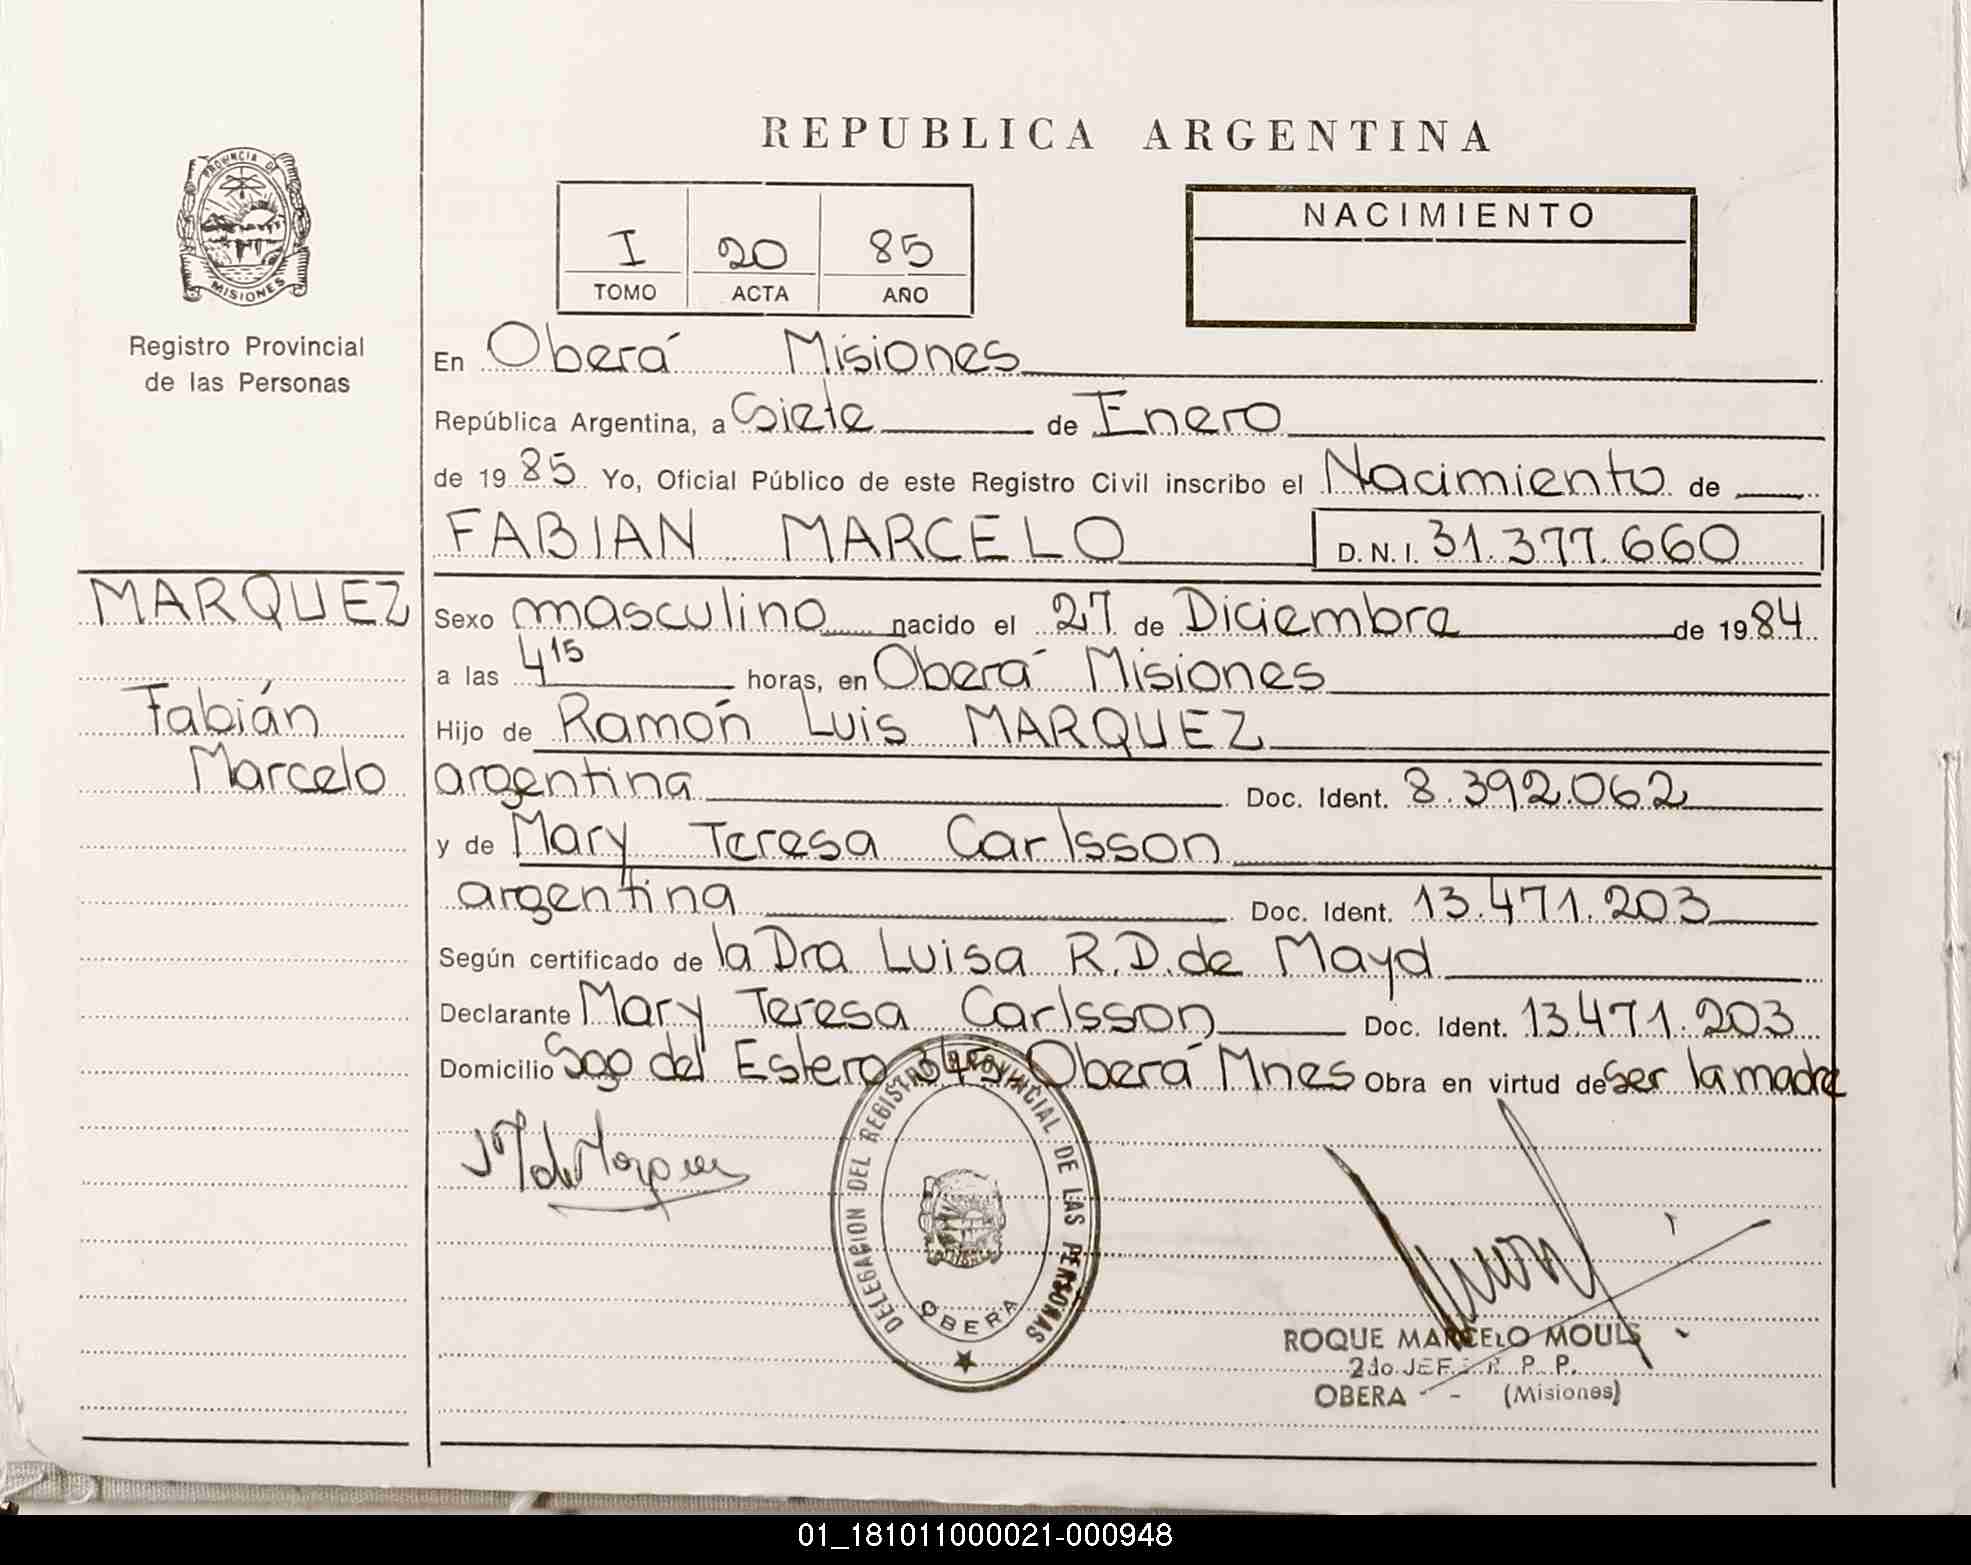 REPUBLICA ARGENTINA
PROVINCIA DE
MISIONES
Registro Provincial
de las Personas
I 20 85
TOMO ACTA AÑO
NACIMIENTO
En Oberá Misiones
República Argentina, a Siete de Enero
de 1985 Yo, Oficial Público de este Registro Civil inscribo el Nacimiento de
FABIAN MARCELO D.N.I. 31.377.660
MARQUEZ
Fabián
Marcelo
Sexo masculino nacido el 27 de Diciembre de 1984
a las 4 15 horas, en Oberá Misiones
Hijo de Ramón Luis MARQUEZ
argentina Doc. Ident. 8.392.062
y de Mary Teresa Carlsson
argentina Doc. Ident. 13.471.203
Según certificado de la Dra Luisa R.D. de Mayd
Declarante Mary Teresa Carlsson Doc. Ident. 13.471.203
Domicilio Sgo del Estero 345 Oberá Mnes Obra en virtud de ser la madre
DELEGACION DEL REGISTRO PROVINCIAL DE LAS PERSONAS
OBERA
ROQUE MARCELO MOULS
2do JEFE R. P. P.
OBERA - (Misiones)
01_181011000021-000948